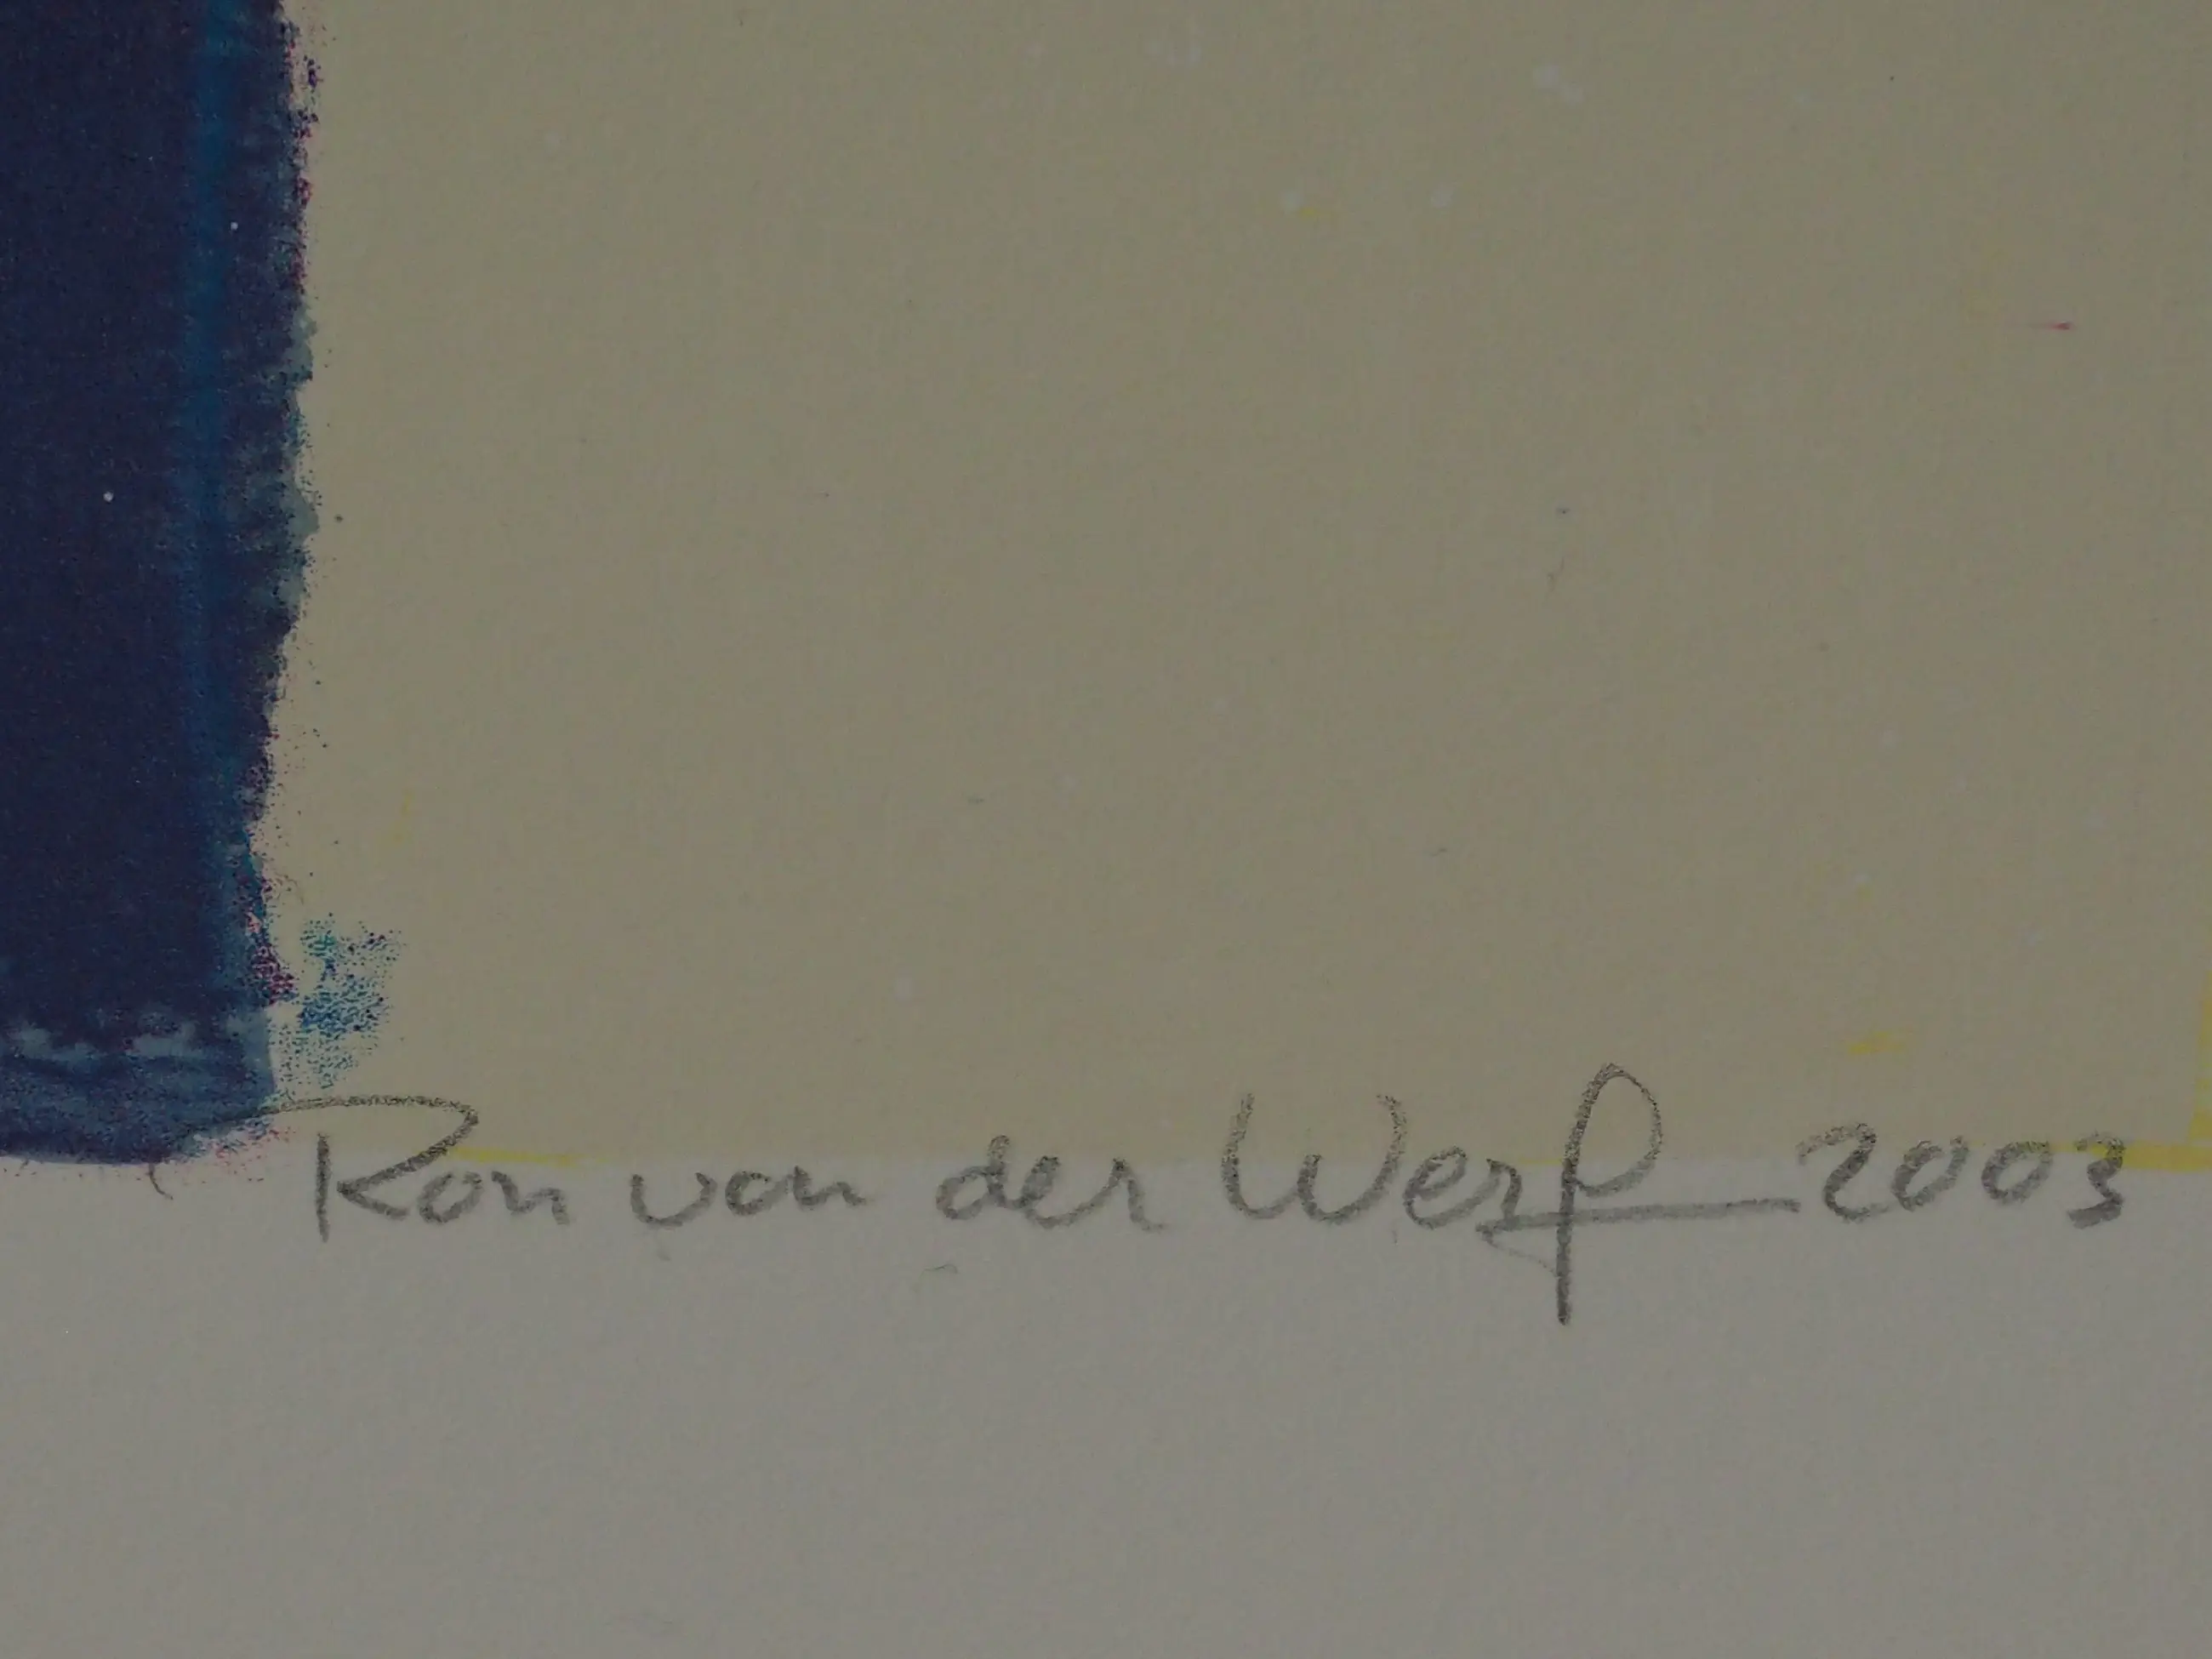 Ron van der Werf 2003